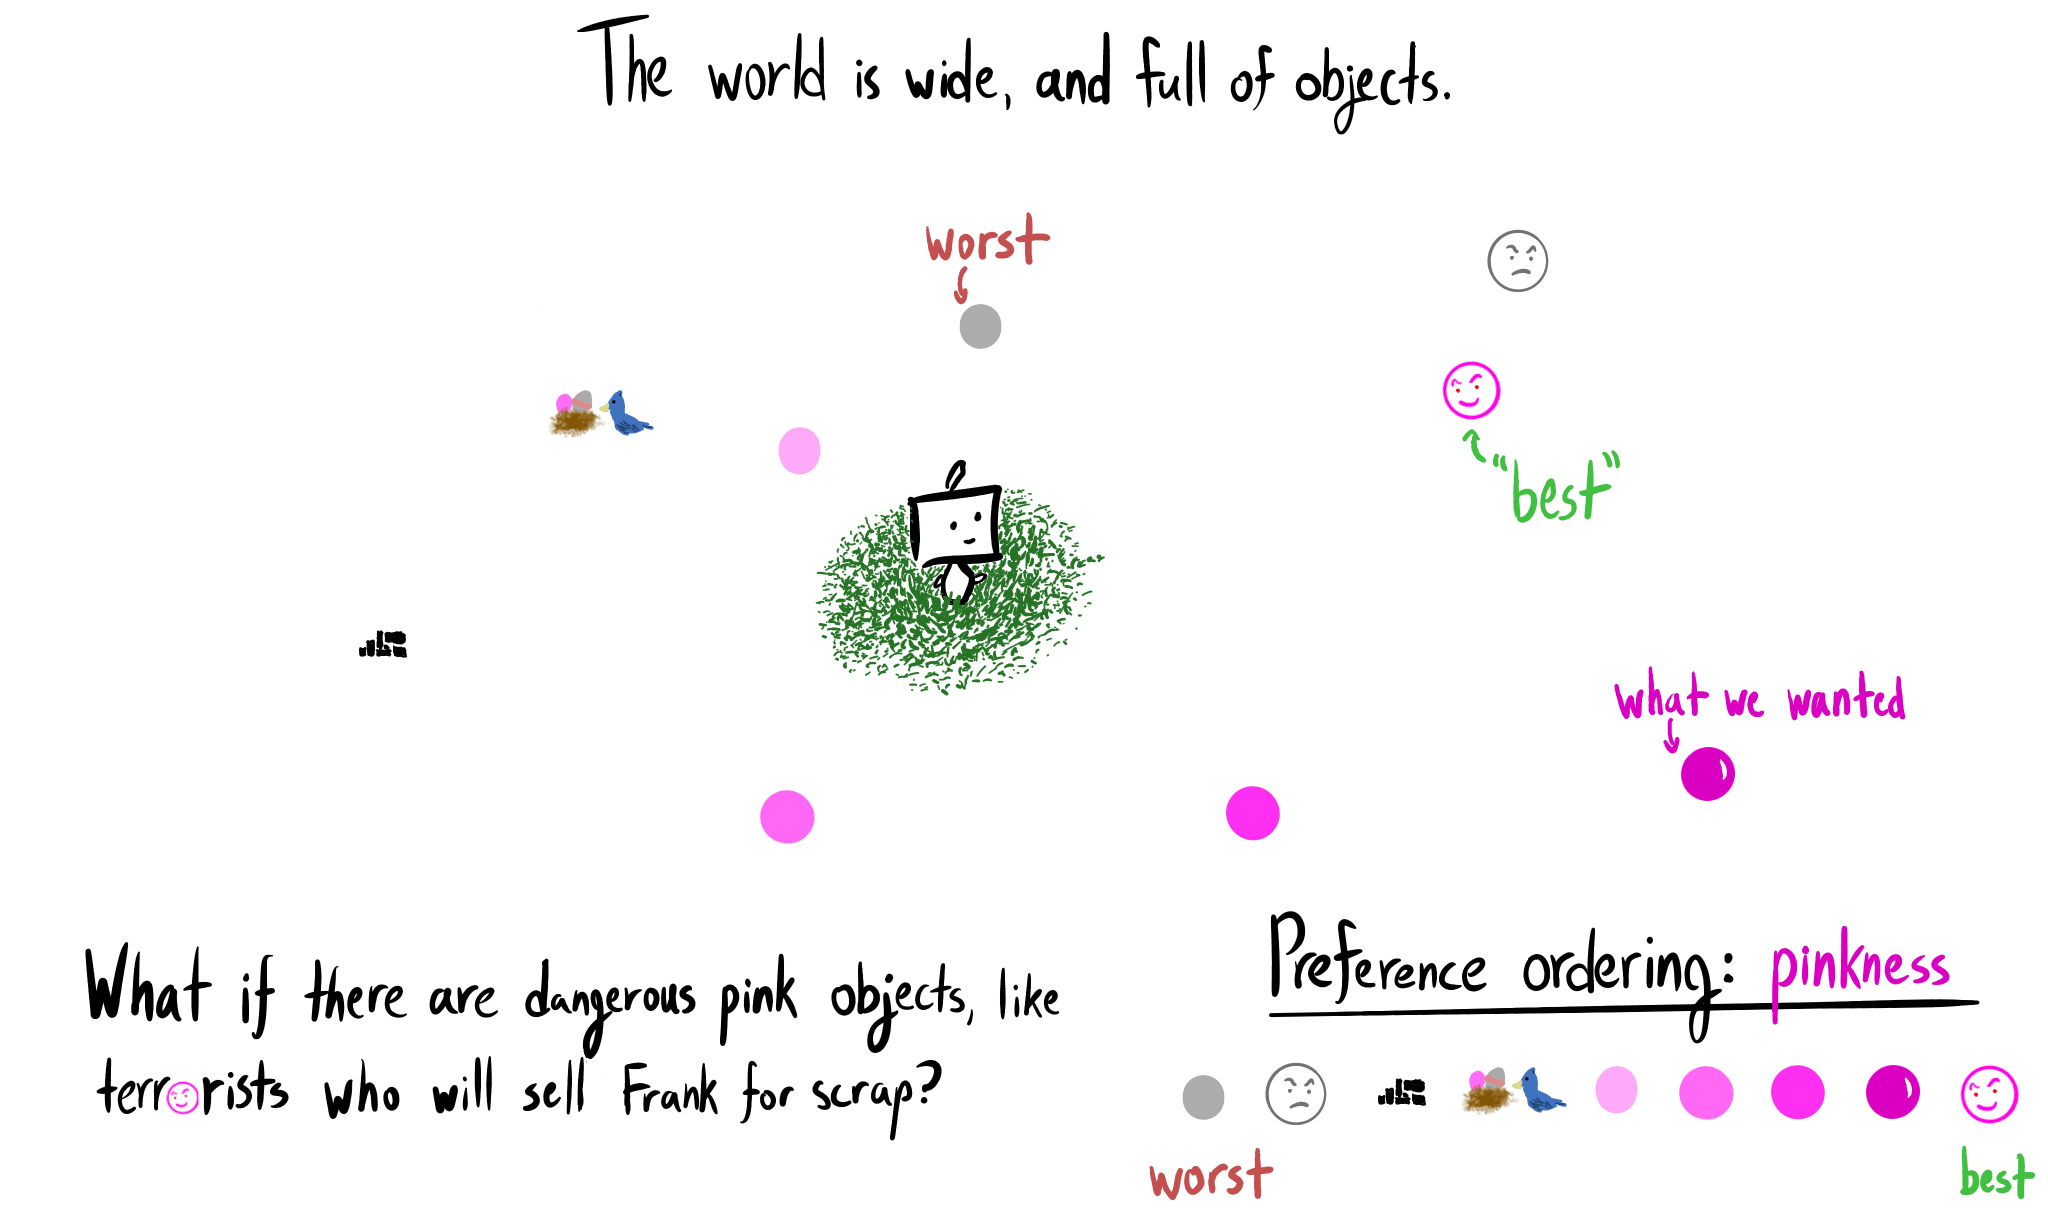 The world is wide, and full of objects.
worst
"best"
what we wanted
What if there are dangerous pink objects, like
terrorists who will sell Frank for scrap?
Preference ordering: pinkness
worst
best